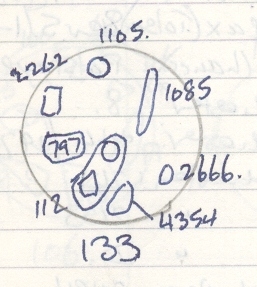 1105.
2262
1085
797
02666.
112
4354
133